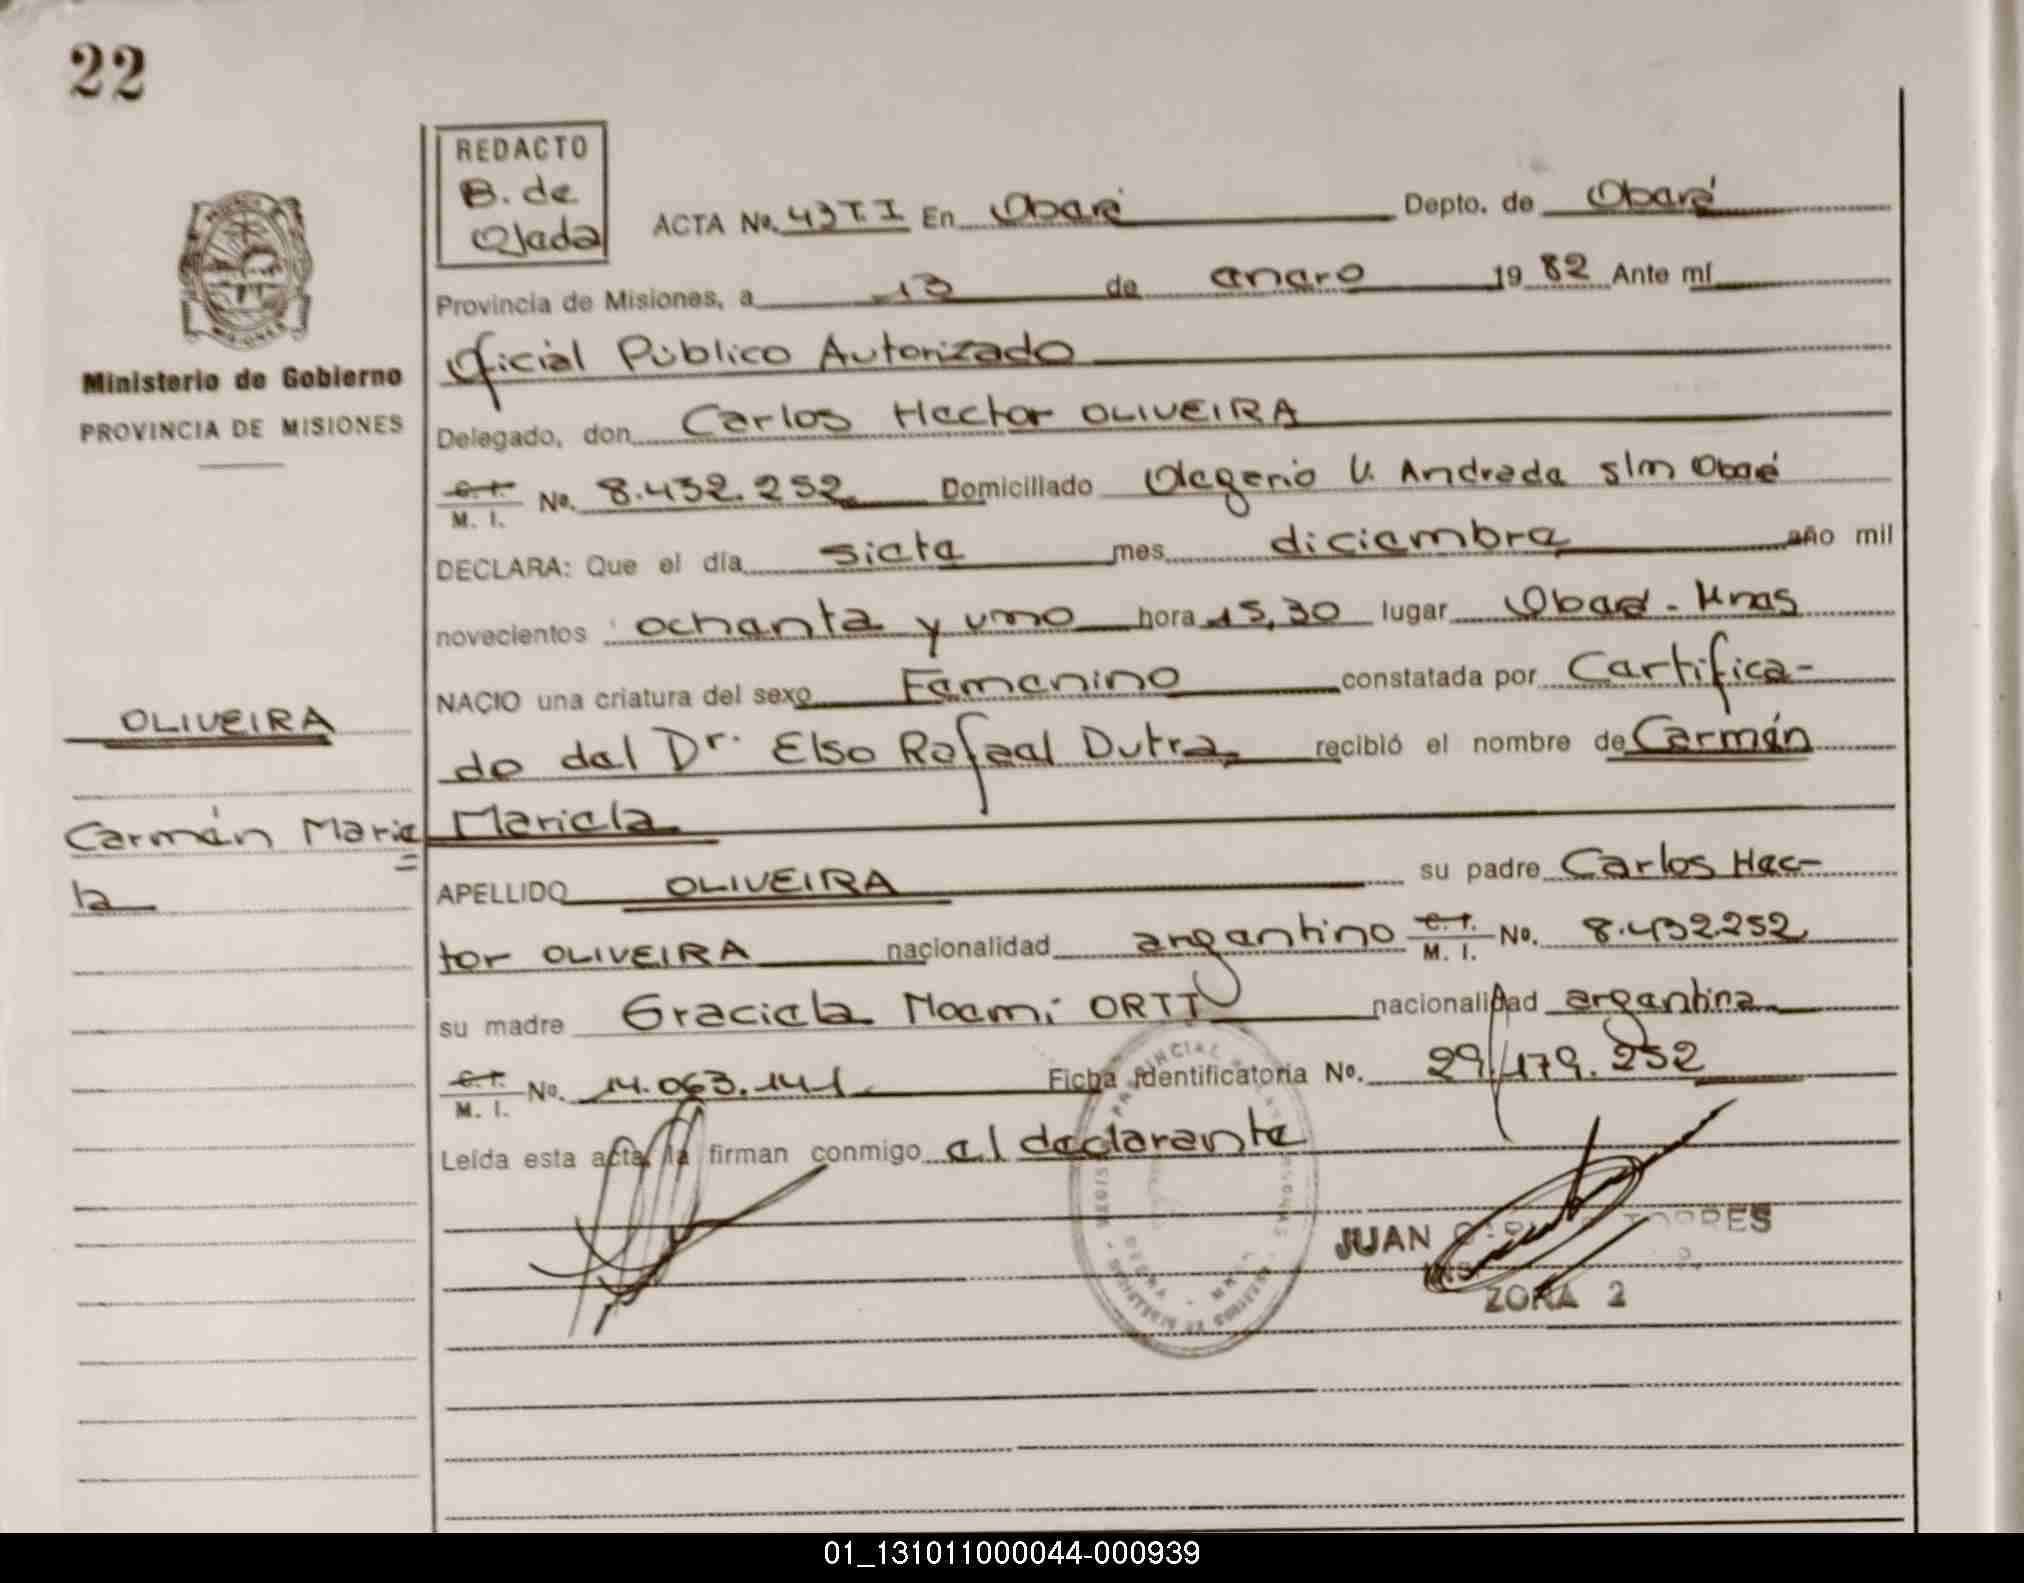 22
REDACTO
B. de
Ojeda
ACTA No. 43 T.I En Oberá Depto. de Oberá
Provincia de Misiones, a 13 de enero 1982 Ante mí
Oficial Público Autorizado
Delegado, don Carlos Hector OLIVEIRA
C.I. M. I. No. 8.432.252 Domiciliado Olegerio V. Andrade s/n Oberá
DECLARA: Que el día siete mes diciembre año mil
novecientos ochenta y uno hora 15,30 lugar Oberá - Mnes
NACIO una criatura del sexo Femenino constatada por Certifica-
do del Dr. Elso Rafael Dutra recibió el nombre de Carmén
Mariela
APELLIDO OLIVEIRA su padre Carlos Hec-
tor OLIVEIRA nacionalidad argentino C.I. M. I. No. 8.432.252
su madre Graciela Noemi ORTT nacionalidad argentina
C.I. M. I. No. 14.063.141 Ficha identificatoria No. 29.179.252
Leída esta acta, la firman conmigo el declarante
JUAN TORRES
ZONA 2
Ministerio de Gobierno
PROVINCIA DE MISIONES
OLIVEIRA
Carmén Marie
=
la
01_131011000044-000939